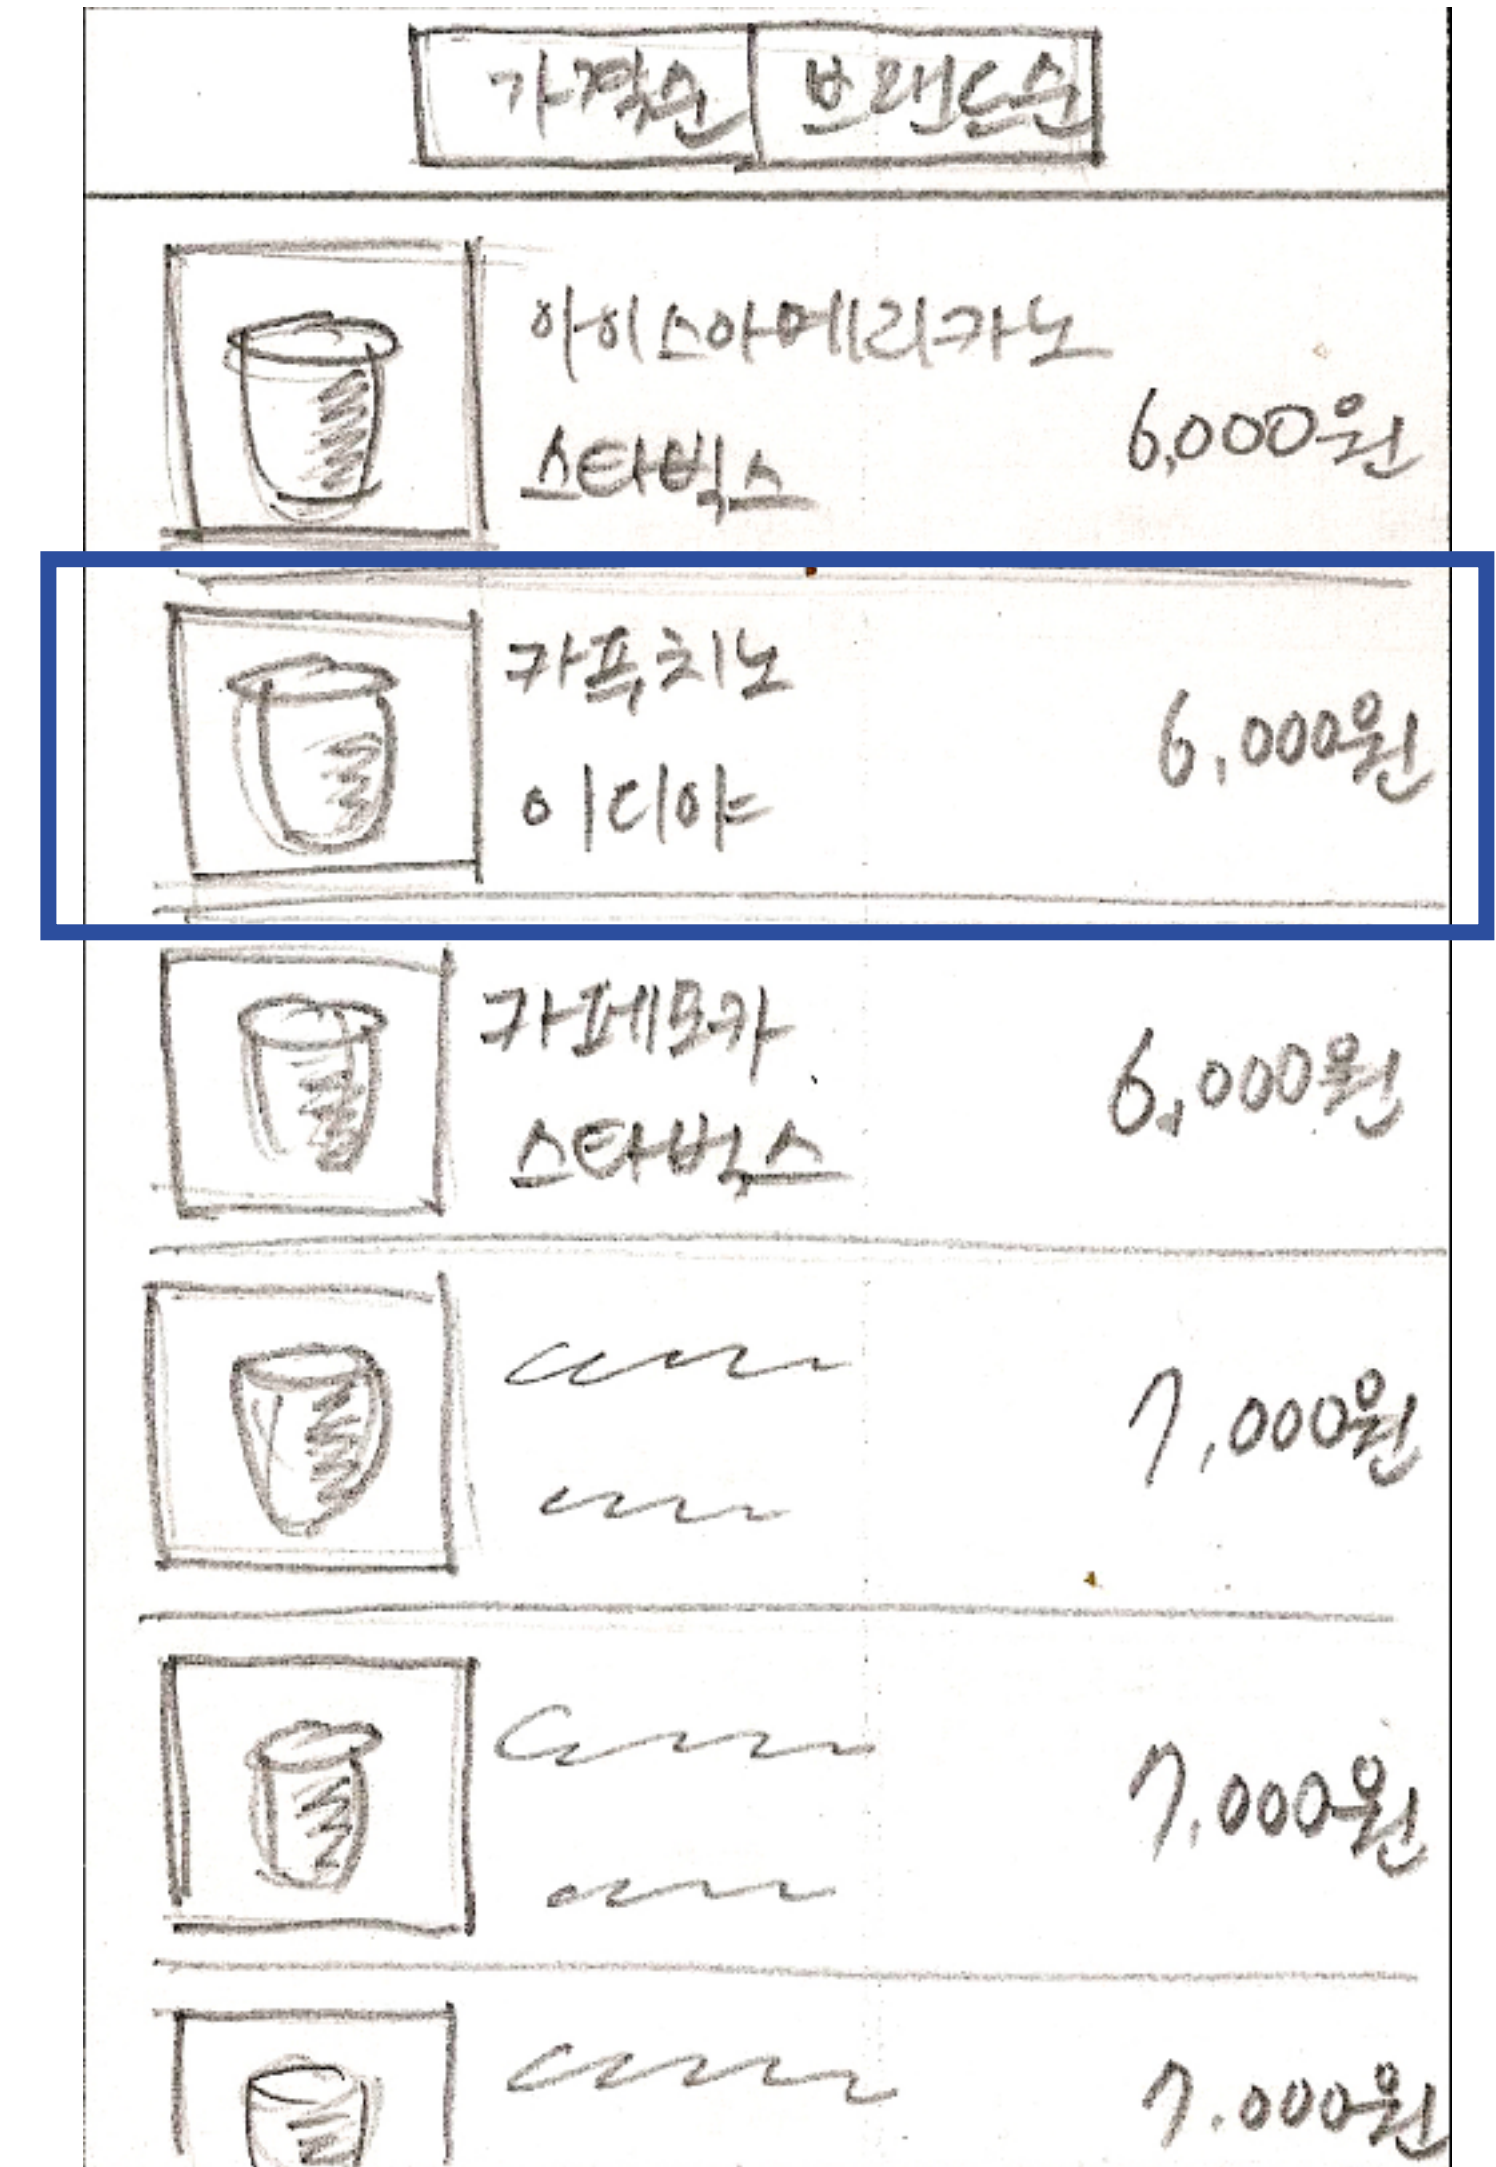 가격순 브랜드순
아이스아메리카노
스타벅스
6,000원
카푸치노
이디야
6,000원
카페모카
스타벅스
6,000원
7,000원
7,000원
7.000원